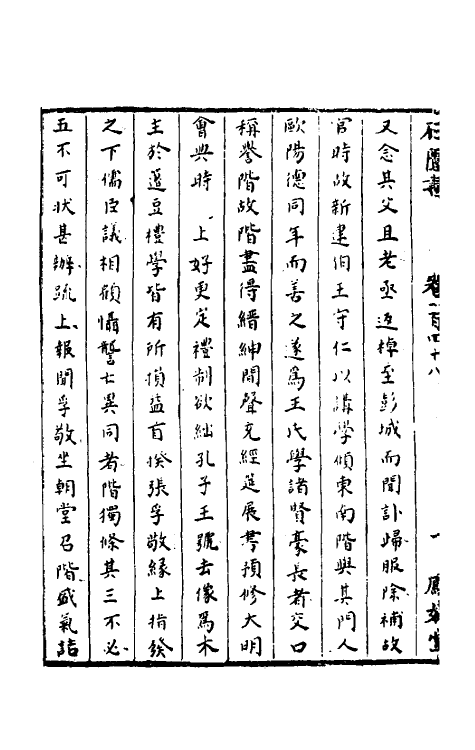 石匱書 卷一百四十八 一 鳳嬉堂
又念其父且老亟返棹至彭城而聞訃歸服除補故
官時故新建伯王守仁以講學傾東南階與其門人
歐陽德同年而善之遂為王氏學諸賢豪長者交口
稱譽階故階盡得縉紳間聲充經筵展書預修大明
會典時 上好更定禮制欲絀孔子王號去像為木
主於籩豆禮學皆有所損益首揆張孚敬緣上指發
之下儒臣議相顧懾讋亡異同者階獨條其三不必
五不可狀甚辦疏上報聞孚敬坐朝堂召階盛氣詰